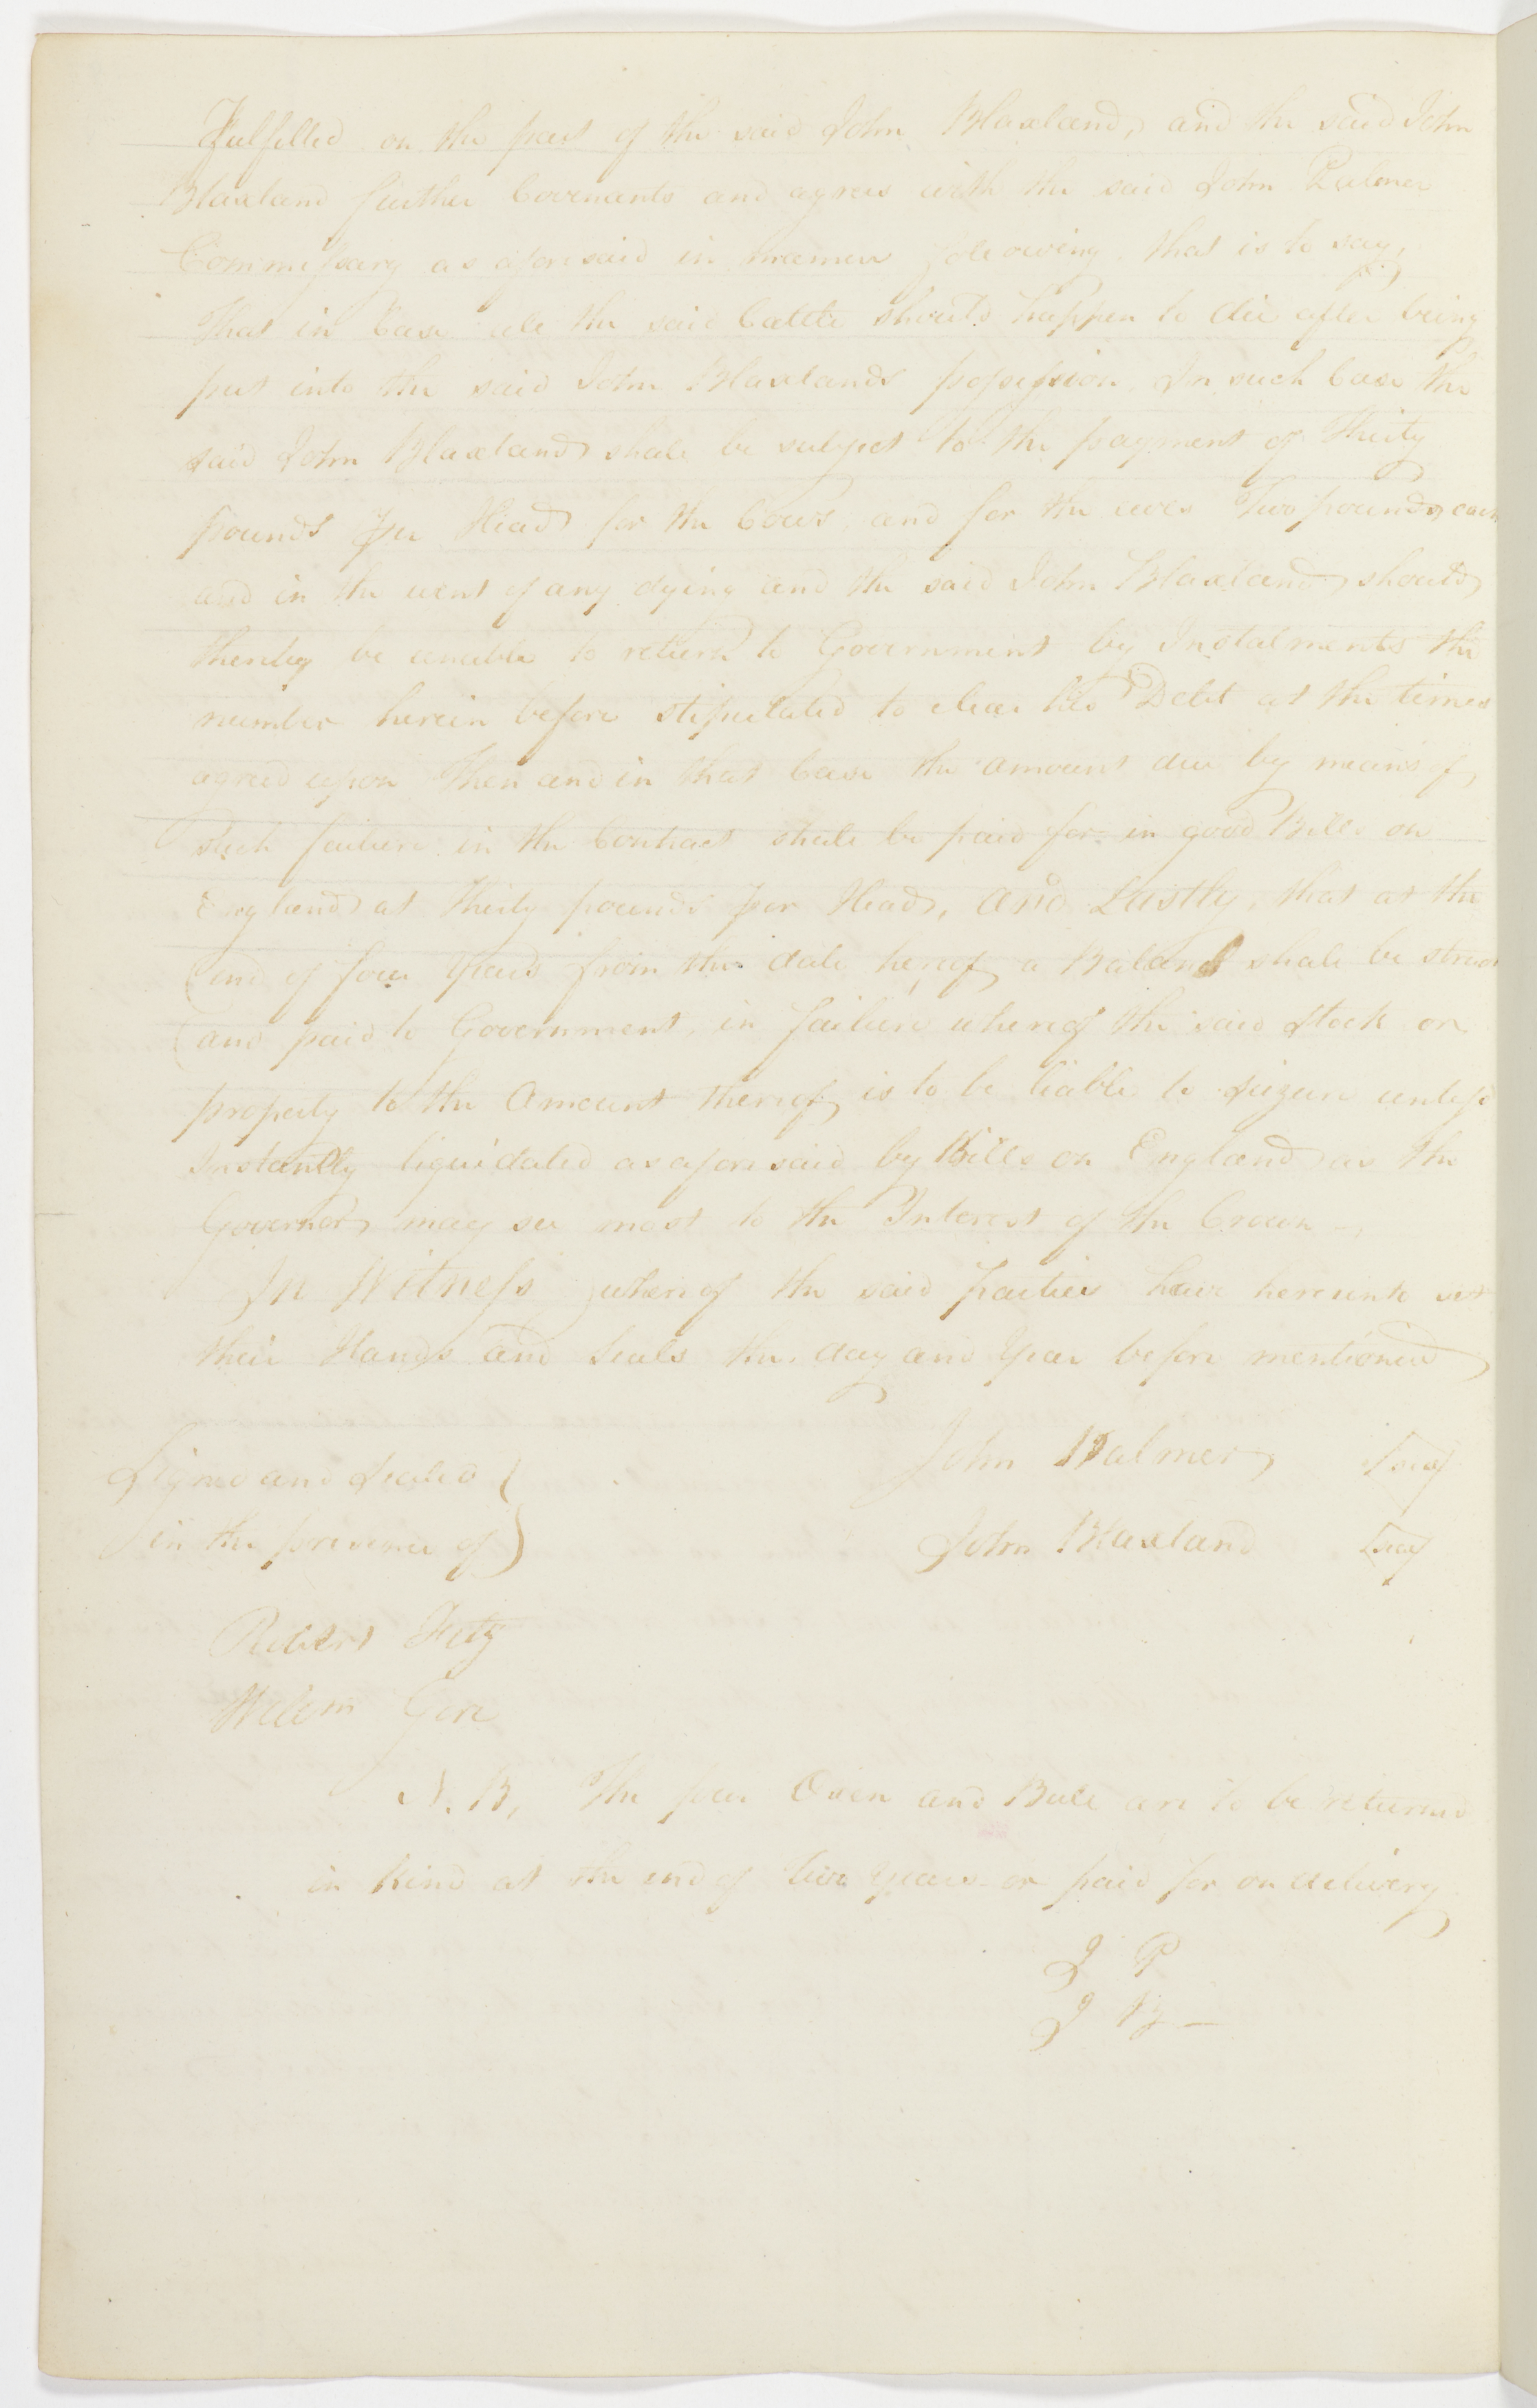 Fulfilled on the part of the said John Blaxland, and the said John
Blaxland further Covenants and agrees with the said John Palmer
Commissary as aforesaid in manner following that is to say,
That in Case all the said Cattle should happen to die after being
put into the said John Blaxlands possession In such Case the
said John Blaxland shall be subject to the payment of Thirty
pounds per Head for the Cows, and for the ewes Two pounds each
and in the event of any dying and the said John Blaxland should
thereby be unable to return to Government by Instalments the
number herein before stipulated to clear his Debt at the times
agreed upon Then and in that Case the amount due by means of
such failure in the Contract shall be paid for in good Bills on
England at Thirty pounds per Head, and Lastly, that at the
end of four Years from the date hereof a Balance shall be struck
and paid to Government, in failure whereof the said Stock or
property to the Amount thereof is to be liable to seizure unless
Instantly liquidated as aforesaid by Bills on England as the
Governor may see most to the Interest of the Crown —
In Witness whereof the said parties have hereunto set
their Hands and Seals the day and Year before mentioned
John Palmer Seal
Signed and Sealed
in the presence of
John Blaxland Seal
Robert Fitz
Willm Gore
N.B, The four Oxen and Bull are to be returned
in Kind at the end of two Years or paid for on delivery
J P
J B —